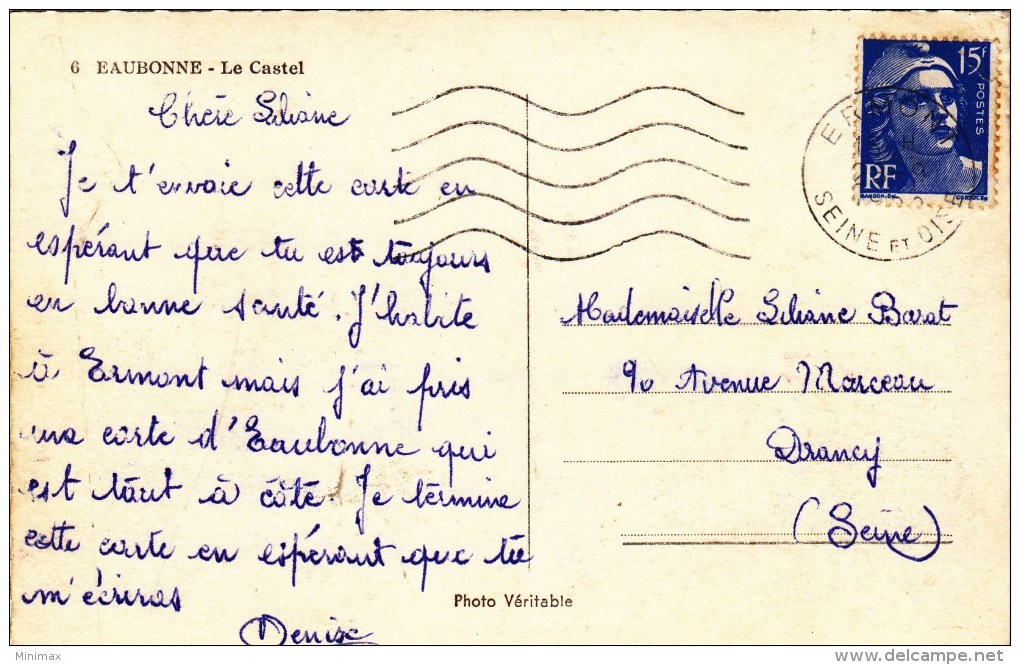 6 EAUBONNE - Le Castel
Chère Liliane
Je t'envoie cette carte en
espérant que tu est toujours
en bonne santé. J'habite
à Ermont mais j'ai pris
une carte d'Eaubonne qui
est tout à côté. Je termine
cette carte en espérant que tu
m'écriras
Denise
Photo Véritable
15F
POSTES
RF
SEINE ET OISE
Mademoiselle Liliane Barat
90 Avenue Marceau
Drancy
(Seine)
Minimax
www.delcampe.net